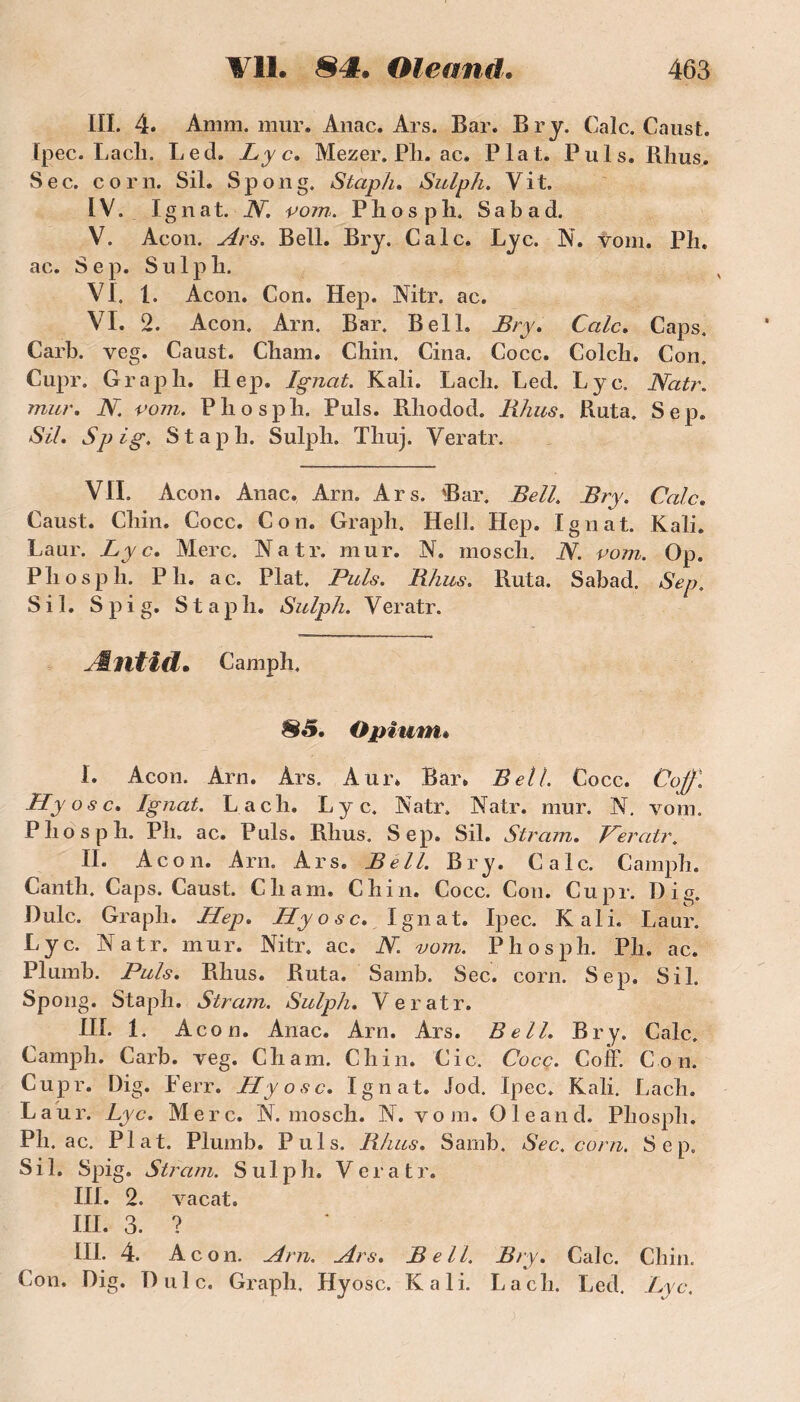 VII. 84. Oleand. 463
III. 4. Amm. mur. Anac. Ars. Bar. Bry. Calc. Caust.
Ipec. Lach. Led. Lyc. Mezer. Ph. ac. Plat. Puls. Rhus.
Sec. corn. Sil. Spong. Staph. Sulph. Vit.
IV. Ignat. N. vom. Phosph. Sabad.
V. Acon. Ars. Bell. Bry. Calc. Lyc. N. vom. Ph.
ac. Sep. Sulph.
VI. 1. Acon. Con. Hep. Nitr. ac.
VI. 2. Acon. Arn. Bar. Bell. Bry. Calc. Caps.
Carb. veg. Caust. Cham. Chin. Cina. Cocc. Colch. Con.
Cupr. Graph. Hep. Ignat. Kali. Lach. Led. Lyc. Natr.
mur. N. vom. Phosph. Puls. Rhodod. Rhus. Ruta. Sep.
Sil. Spig. Staph. Sulph. Thuj. Veratr.
VII. Acon. Anac. Arn. Ars. Bar. Bell. Bry. Calc.
Caust. Chin. Cocc. Con. Graph. Hell. Hep. Ignat. Kali.
Laur. Lyc. Merc. Natr. mur. N. mosch. N. vom. Op.
Phosph. Ph. ac. Plat. Puls. Rhus. Ruta. Sabad. Sep.
Sil. Spig. Staph. Sulph. Veratr.
Antid. Camph.
85. Opium.
I. Acon. Arn. Ars. Aur. Bar. Bell. Cocc. Coff.
Hyosc. Ignat. Lach. Lyc. Natr. Natr. mur. N. vom.
Phosph. Ph. ac. Puls. Rhus. Sep. Sil. Stram. Veratr.
II. Acon. Arn. Ars. Bell. Bry. Calc. Camph.
Canth. Caps. Caust. Cham. Chin. Cocc. Con. Cupr. Dig.
Dulc. Graph. Hep. Hyosc. Ignat. Ipec. Kali. Laur.
Lyc. Natr. mur. Nitr. ac. N. vom. Phosph. Ph. ac.
Plumb. Puls. Rhus. Ruta. Samb. Sec. corn. Sep. Sil.
Spong. Staph. Stram. Sulph. Veratr.
III. 1. Acon. Anac. Arn. Ars. Bell. Bry. Calc.
Camph. Carb. veg. Cham. Chin. Cic. Cocc. Coff. Con.
Cupr. Dig. Ferr. Hyosc. Ignat. Jod. Ipec. Kali. Lach.
Laur. Lyc. Merc. N. mosch. N. vom. Oleand. Phosph.
Ph. ac. Plat. Plumb. Puls. Rhus. Samb. Sec. corn. Sep.
Sil. Spig. Stram. Sulph. Veratr.
III. 2. vacat.
III. 3. ?
III. 4. Acon. Arn. Ars. Bell. Bry. Calc. Chin.
Con. Dig. Dulc. Graph. Hyosc. Kali. Lach. Led. Lyc.